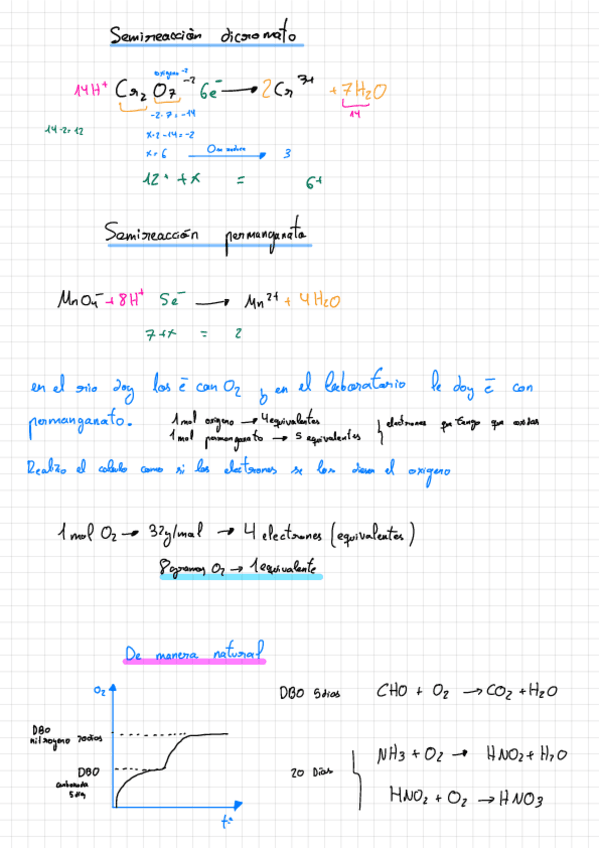 Semireacción dicromato
oxígeno -2
14H⁺ Cr₂ O₇⁻² 6e⁻ → 2Cr³⁺ + 7H₂O
-2·7 = -14
14
14-2=12
x·2-14=-2
x=6 → 3
12⁺ + x = 6+
Semireacción permanganato
MnO₄⁻ + 8H⁺ 5e⁻ → Mn²⁺ + 4H₂O
7+x = 2
en el rio doy los e⁻ con O₂ y en el laboratorio le doy e⁻ con
permanganato.
1 mol oxigeno → 4 equivalentes
1 mol permanganato → 5 equivalentes } electrones que tengo que oxidar
Realizo el calculo como si los electrones se los diera el oxigeno
1 mol O₂ → 32g/mol → 4 electrones (equivalentes)
8 gramos O₂ → 1 equivalente
De manera natural
O₂
DBO 5 dias CHO + O₂ → CO₂ + H₂O
DBO
nitrogeno 20 dias
NH₃ + O₂ → HNO₂ + H₂O
DBO
carbonada
5 dias
20 Dias
HNO₂ + O₂ → HNO₃
t